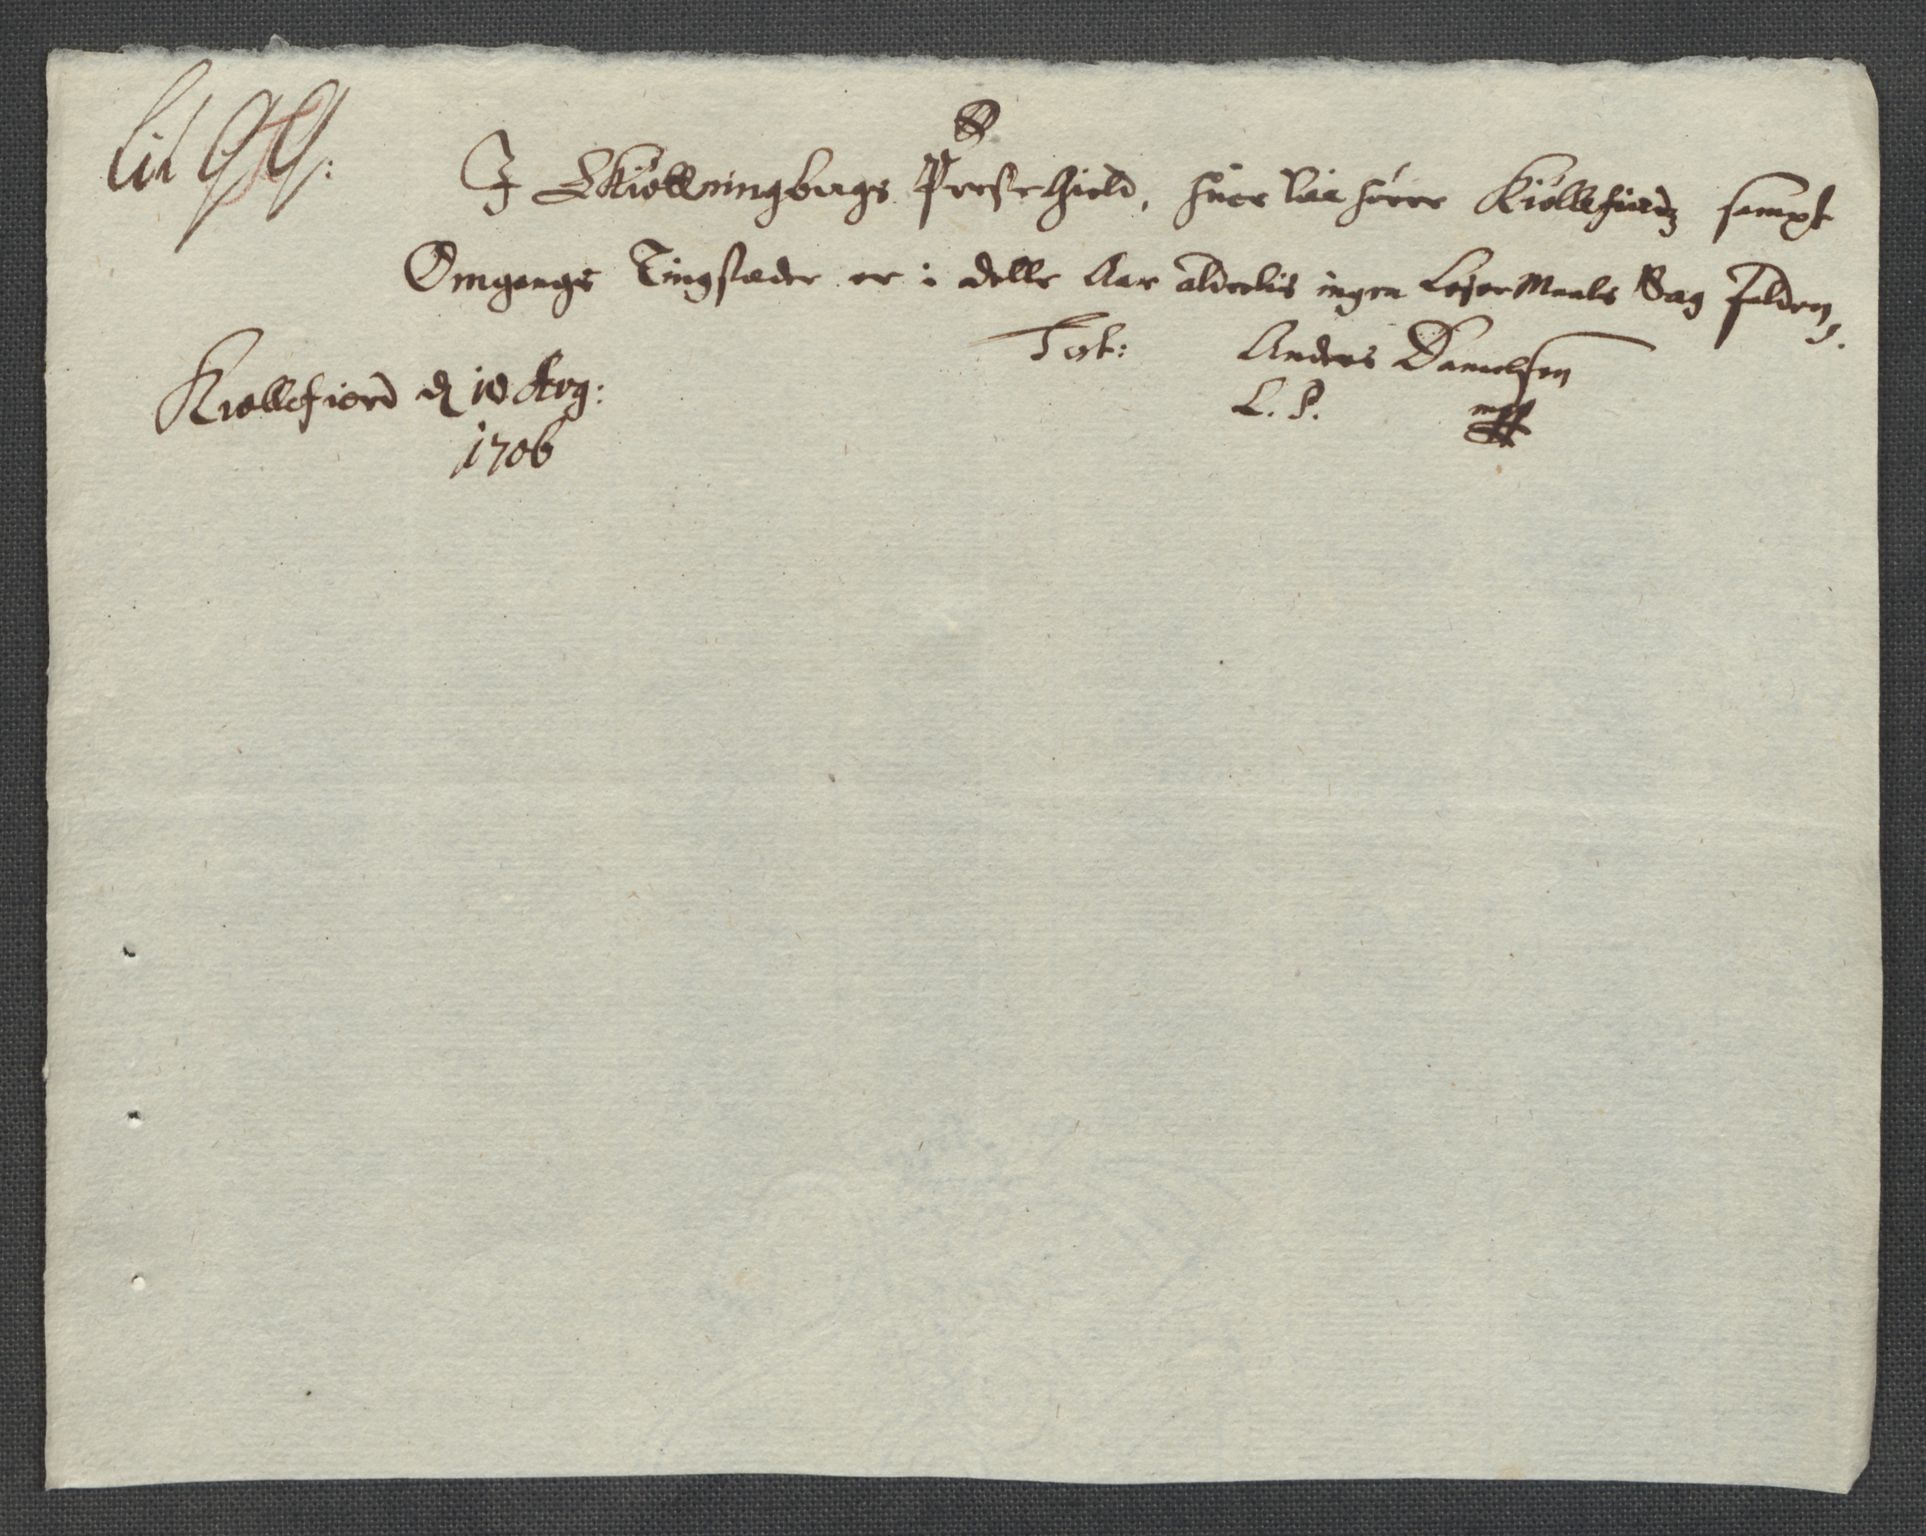 Lit QQ:
I Skiøttningbergs Prestegield, huor til hører Kiøllefiords sampt
Omgangs Tingstæder er i dette Aar aldeelis ingen Leyermaals Sag falden.
Test: Anders Danielsen
L. S. mpp
Kiøllefiord d 10 Aug:
1706